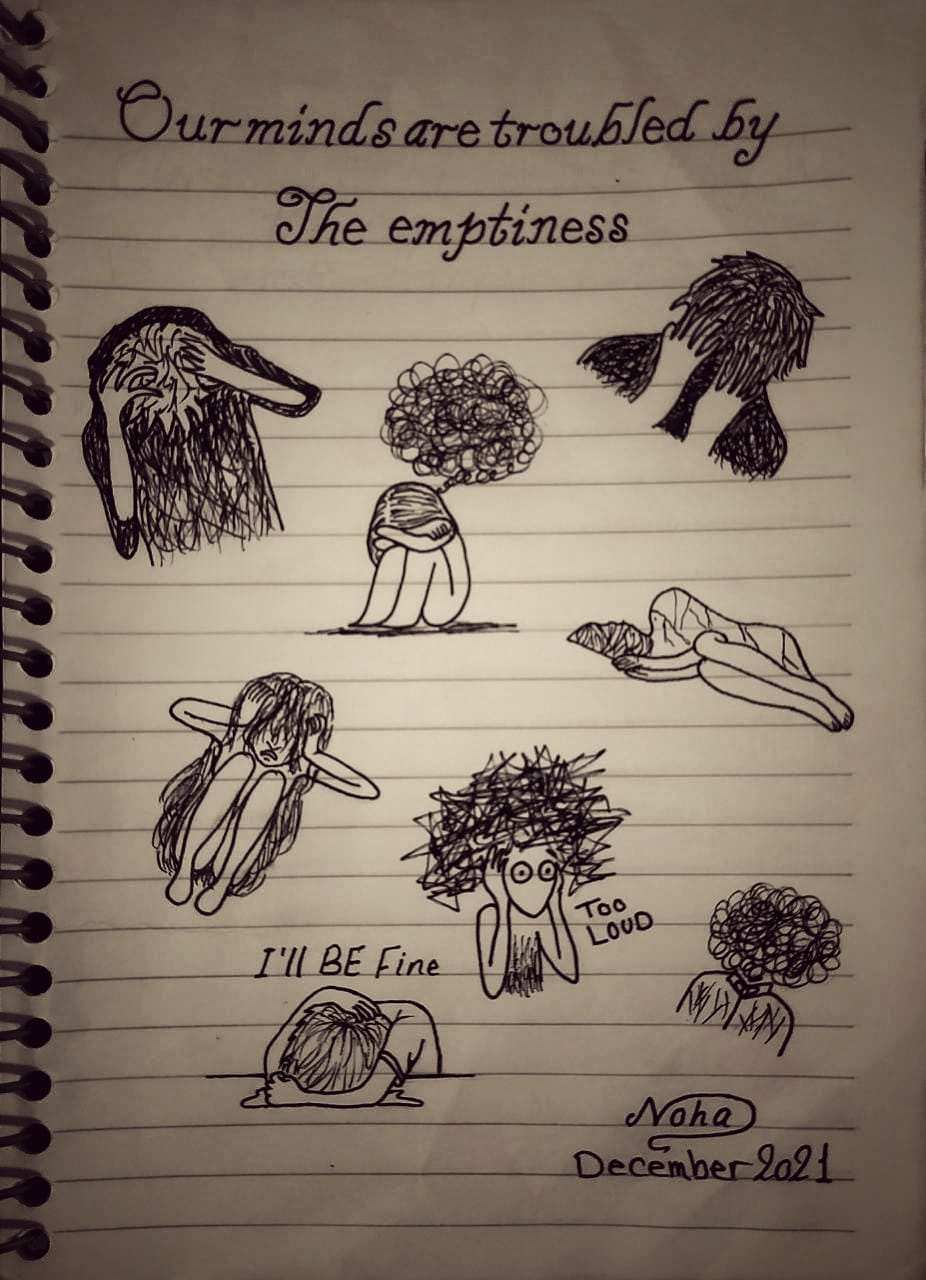 Our minds are troubled by
The emptiness
TOO
LOUD
I'll BE Fine
Noha
December 2021